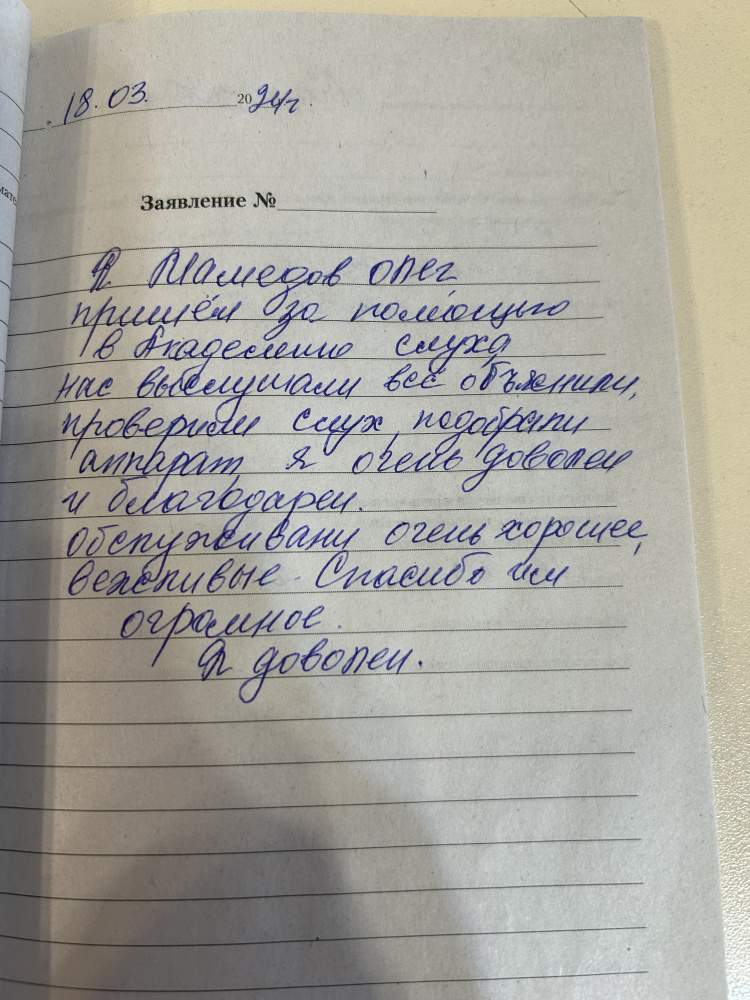 18.03. 2024г.
Заявление №
Я Мамедов Олег
пришёл за помощью
в Академию слуха
нас выслушали всё объяснили,
проверили слух, подобрали
аппарат, я очень доволен
и благодарен.
обслуживани очень хорошее,
вежливые. Спасибо им
огромное.
Я доволен.